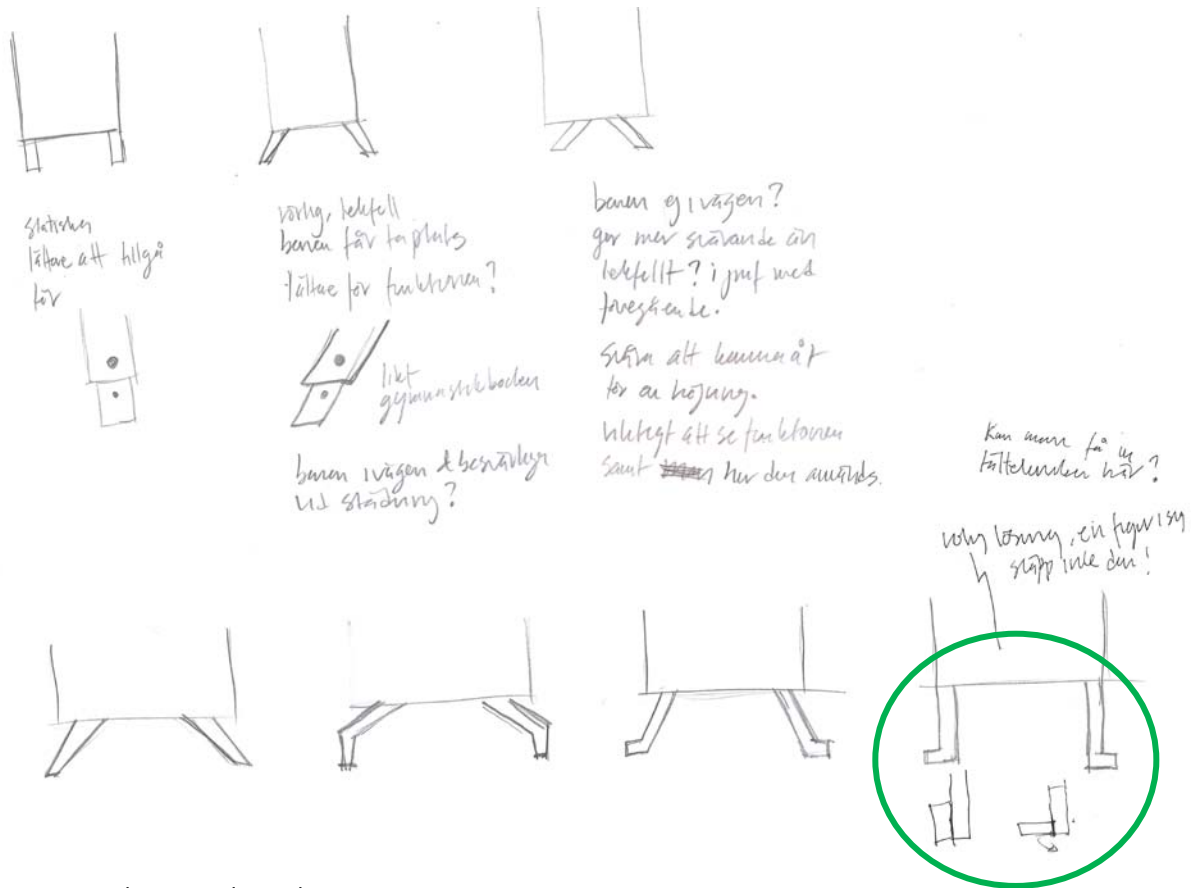 statisken
lättare att tillgå
för
rolig, lekfull
benen får ta plats
lättare för funktionen?
likt
gymnastikbocken
benen i vägen & besvärliga
vid städning?
benen ej i vägen?
ger mer svävande än
lekfullt? i jmf med
föregående.
svåra att komma åt
för en höjning.
viktigt att se funktionen
samt hur den används.
Kan man få in
här?
rolig lösning, en figur i sig
släpp inte den!